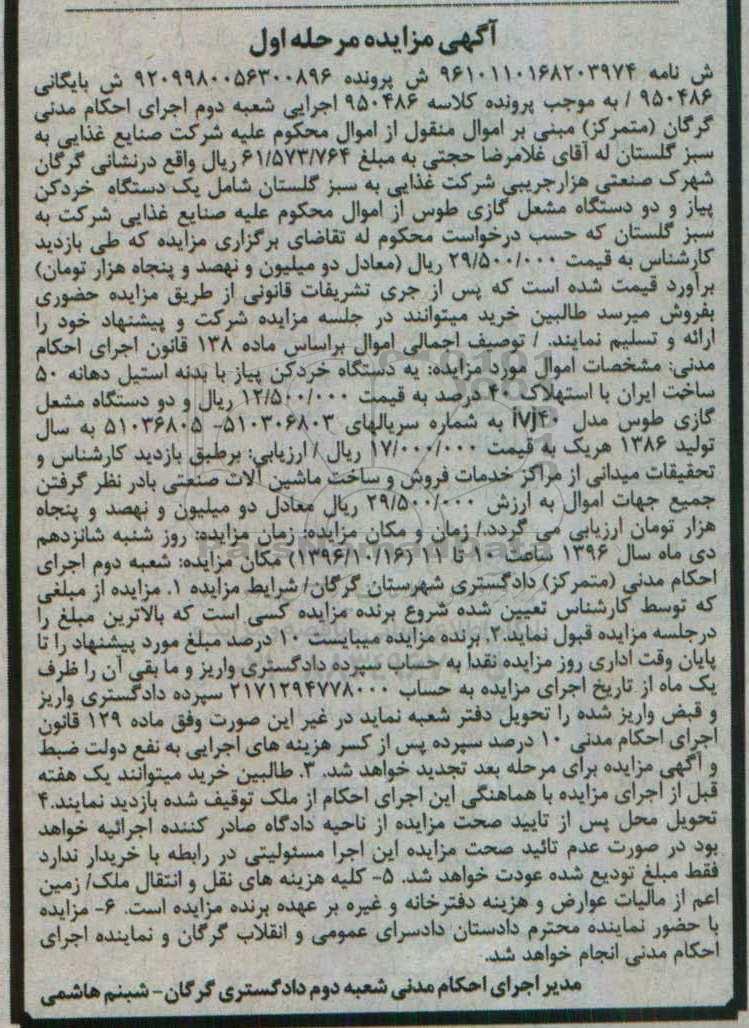 آگهی مزایده مرحله اول
ش نامه ۹۶۱۰۱۱۰۱۶۸۲۰۳۹۷۴ ش پرونده ۹۲۰۹۹۸۰۰۵۶۳۰۰۸۹۶ ش بایگانی
۹۵۰۴۸۶ / به موجب پرونده کلاسه ۹۵۰۴۸۶ اجرایی شعبه دوم اجرای احکام مدنی
گرگان (متمرکز) مبنی بر اموال منقول از اموال محکوم علیه شرکت صنایع غذایی به
سبز گلستان له آقای غلامرضا حجتی به مبلغ ۶۱/۵۷۳/۷۶۴ ریال واقع درنشانی گرگان
شهرک صنعتی هزارجریبی شرکت غذایی به سبز گلستان شامل یک دستگاه خردکن
پیاز و دو دستگاه مشعل گازی طوس از اموال محکوم علیه صنایع غذایی شرکت به
سبز گلستان که حسب درخواست محکوم له تقاضای برگزاری مزایده که طی بازدید
کارشناس به قیمت ۲۹/۵۰۰/۰۰۰ ریال (معادل دو میلیون و نهصد و پنجاه هزار تومان)
برآورد قیمت شده است که پس از جری تشریفات قانونی از طریق مزایده حضوری
بفروش میرسد طالبین خرید میتوانند در جلسه مزایده شرکت و پیشنهاد خود را
ارائه و تسلیم نمایند. / توصیف اجمالی اموال براساس ماده ۱۳۸ قانون اجرای احکام
مدنی: مشخصات اموال مورد مزایده: یه دستگاه خردکن پیاز با بدنه استیل دهانه ۵۰
ساخت ایران با استهلاک ۴۰ درصد به قیمت ۱۲/۵۰۰/۰۰۰ ریال و دو دستگاه مشعل
گازی طوس مدل ivj۴۰ به شماره سریالهای ۵۱۰۳۰۶۸۰۳- ۵۱۰۳۶۸۰۵ به سال
تولید ۱۳۸۶ هریک به قیمت ۱۷/۰۰۰/۰۰۰ ریال / ارزیابی: برطبق بازدید کارشناس و
تحقیقات میدانی از مراکز خدمات فروش و ساخت ماشین آلات صنعتی بادر نظر گرفتن
جمیع جهات اموال به ارزش ۲۹/۵۰۰/۰۰۰ ریال معادل دو میلیون و نهصد و پنجاه
هزار تومان ارزیابی می گردد./ زمان و مکان مزایده: زمان مزایده: روز شنبه شانزدهم
دی ماه سال ۱۳۹۶ ساعت ۱۰ تا ۱۱ (۱۳۹۶/۱۰/۱۶) مکان مزایده: شعبه دوم اجرای
احکام مدنی (متمرکز) دادگستری شهرستان گرگان/ شرایط مزایده ۱. مزایده از مبلغی
که توسط کارشناس تعیین شده شروع برنده مزایده کسی است که بالاترین مبلغ را
درجلسه مزایده قبول نماید.۲. برنده مزایده میبایست ۱۰ درصد مبلغ مورد پیشنهاد را تا
پایان وقت اداری روز مزایده نقدا به حساب سپرده دادگستری واریز و ما بقی آن را ظرف
یک ماه از تاریخ اجرای مزایده به حساب ۲۱۷۱۲۹۴۷۷۸۰۰۰ سپرده دادگستری واریز
و قبض واریز شده را تحویل دفتر شعبه نماید در غیر این صورت وفق ماده ۱۲۹ قانون
اجرای احکام مدنی ۱۰ درصد سپرده پس از کسر هزینه های اجرایی به نفع دولت ضبط
و آگهی مزایده برای مرحله بعد تجدید خواهد شد. ۳. طالبین خرید میتوانند یک هفته
قبل از اجرای مزایده با هماهنگی این اجرای احکام از ملک توقیف شده بازدید نمایند.۴
تحویل محل پس از تایید صحت مزایده از ناحیه دادگاه صادر کننده اجرائیه خواهد
بود در صورت عدم تائید صحت مزایده این اجرا مسئولیتی در رابطه با خریدار ندارد
فقط مبلغ تودیع شده عودت خواهد شد. ۵- کلیه هزینه های نقل و انتقال ملک/ زمین
اعم از مالیات عوارض و هزینه دفترخانه و غیره بر عهده برنده مزایده است. ۶- مزایده
با حضور نماینده محترم دادستان دادسرای عمومی و انقلاب گرگان و نماینده اجرای
احکام مدنی انجام خواهد شد.
مدیر اجرای احکام مدنی شعبه دوم دادگستری گرگان- شبنم هاشمی